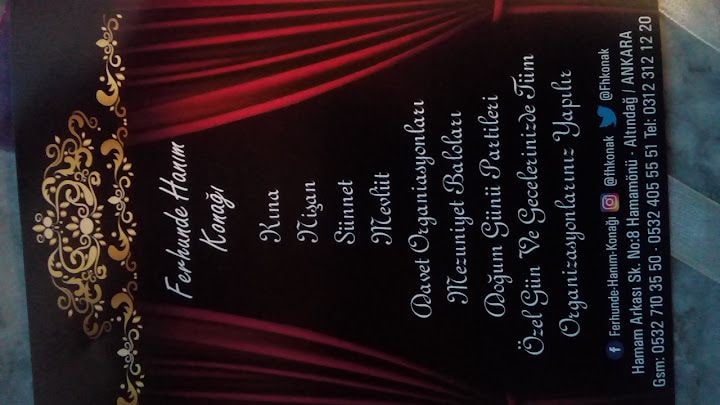 Ferhunde Hanım
Konağı
Kına
Nişan
Sünnet
Mevlüt
Davet Organiasyonları
Mezuniyet Baloları
Doğum Günü Partileri
Özel Gün Ve Gecelerinizde Tüm
Organizasyonlarınız Yapılır
f Ferhunde-Hanım-Konağı @fhkonak @Fhkonak
Hamam Arkası Sk. No:8 Hamamönü - Altındağ / ANKARA
Gsm: 0532 710 35 50 - 0532 405 55 51 Tel: 0312 312 12 20